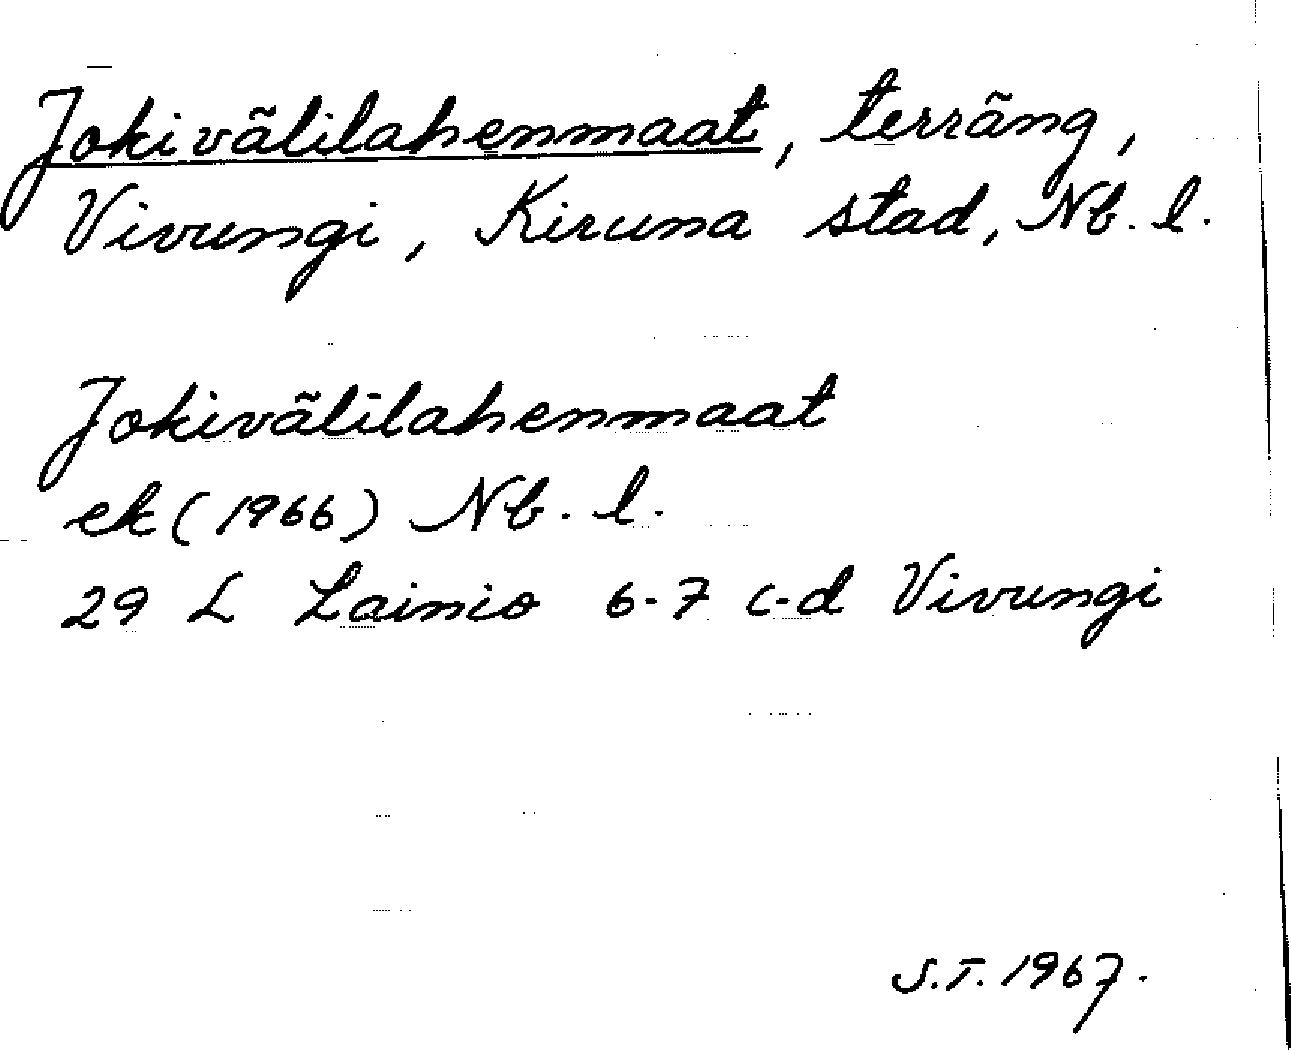 Jokivälilahenmaat, terräng,
Vivungi, Kiruna stad, Nb. l.
Jokivälilahenmaat
ek (1966) Nb. l.
29 L Lainio 6-7 c-d Vivungi
S.T. 1967.